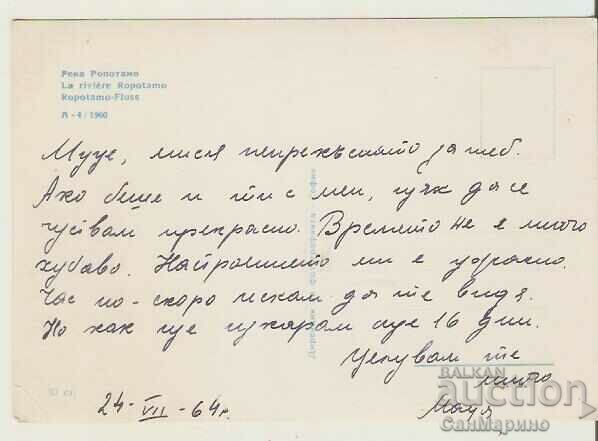 Река Ропотамо
La rivière Ropotamo
Ropotamo-Fluss
А - 4 / 1960
Муце, мисля непрекъснато за теб.
Ако беше и ти с мен, щях да се
чуствам прекрасно. Времето не е много
хубаво. Настроението ми е ужасно.
Час по-скоро искам да те видя.
Но как ще изкарам още 16 дни.
Целувам те
много
Мая
24 - VII - 64 г.
BALKAN
auction
СанМарино